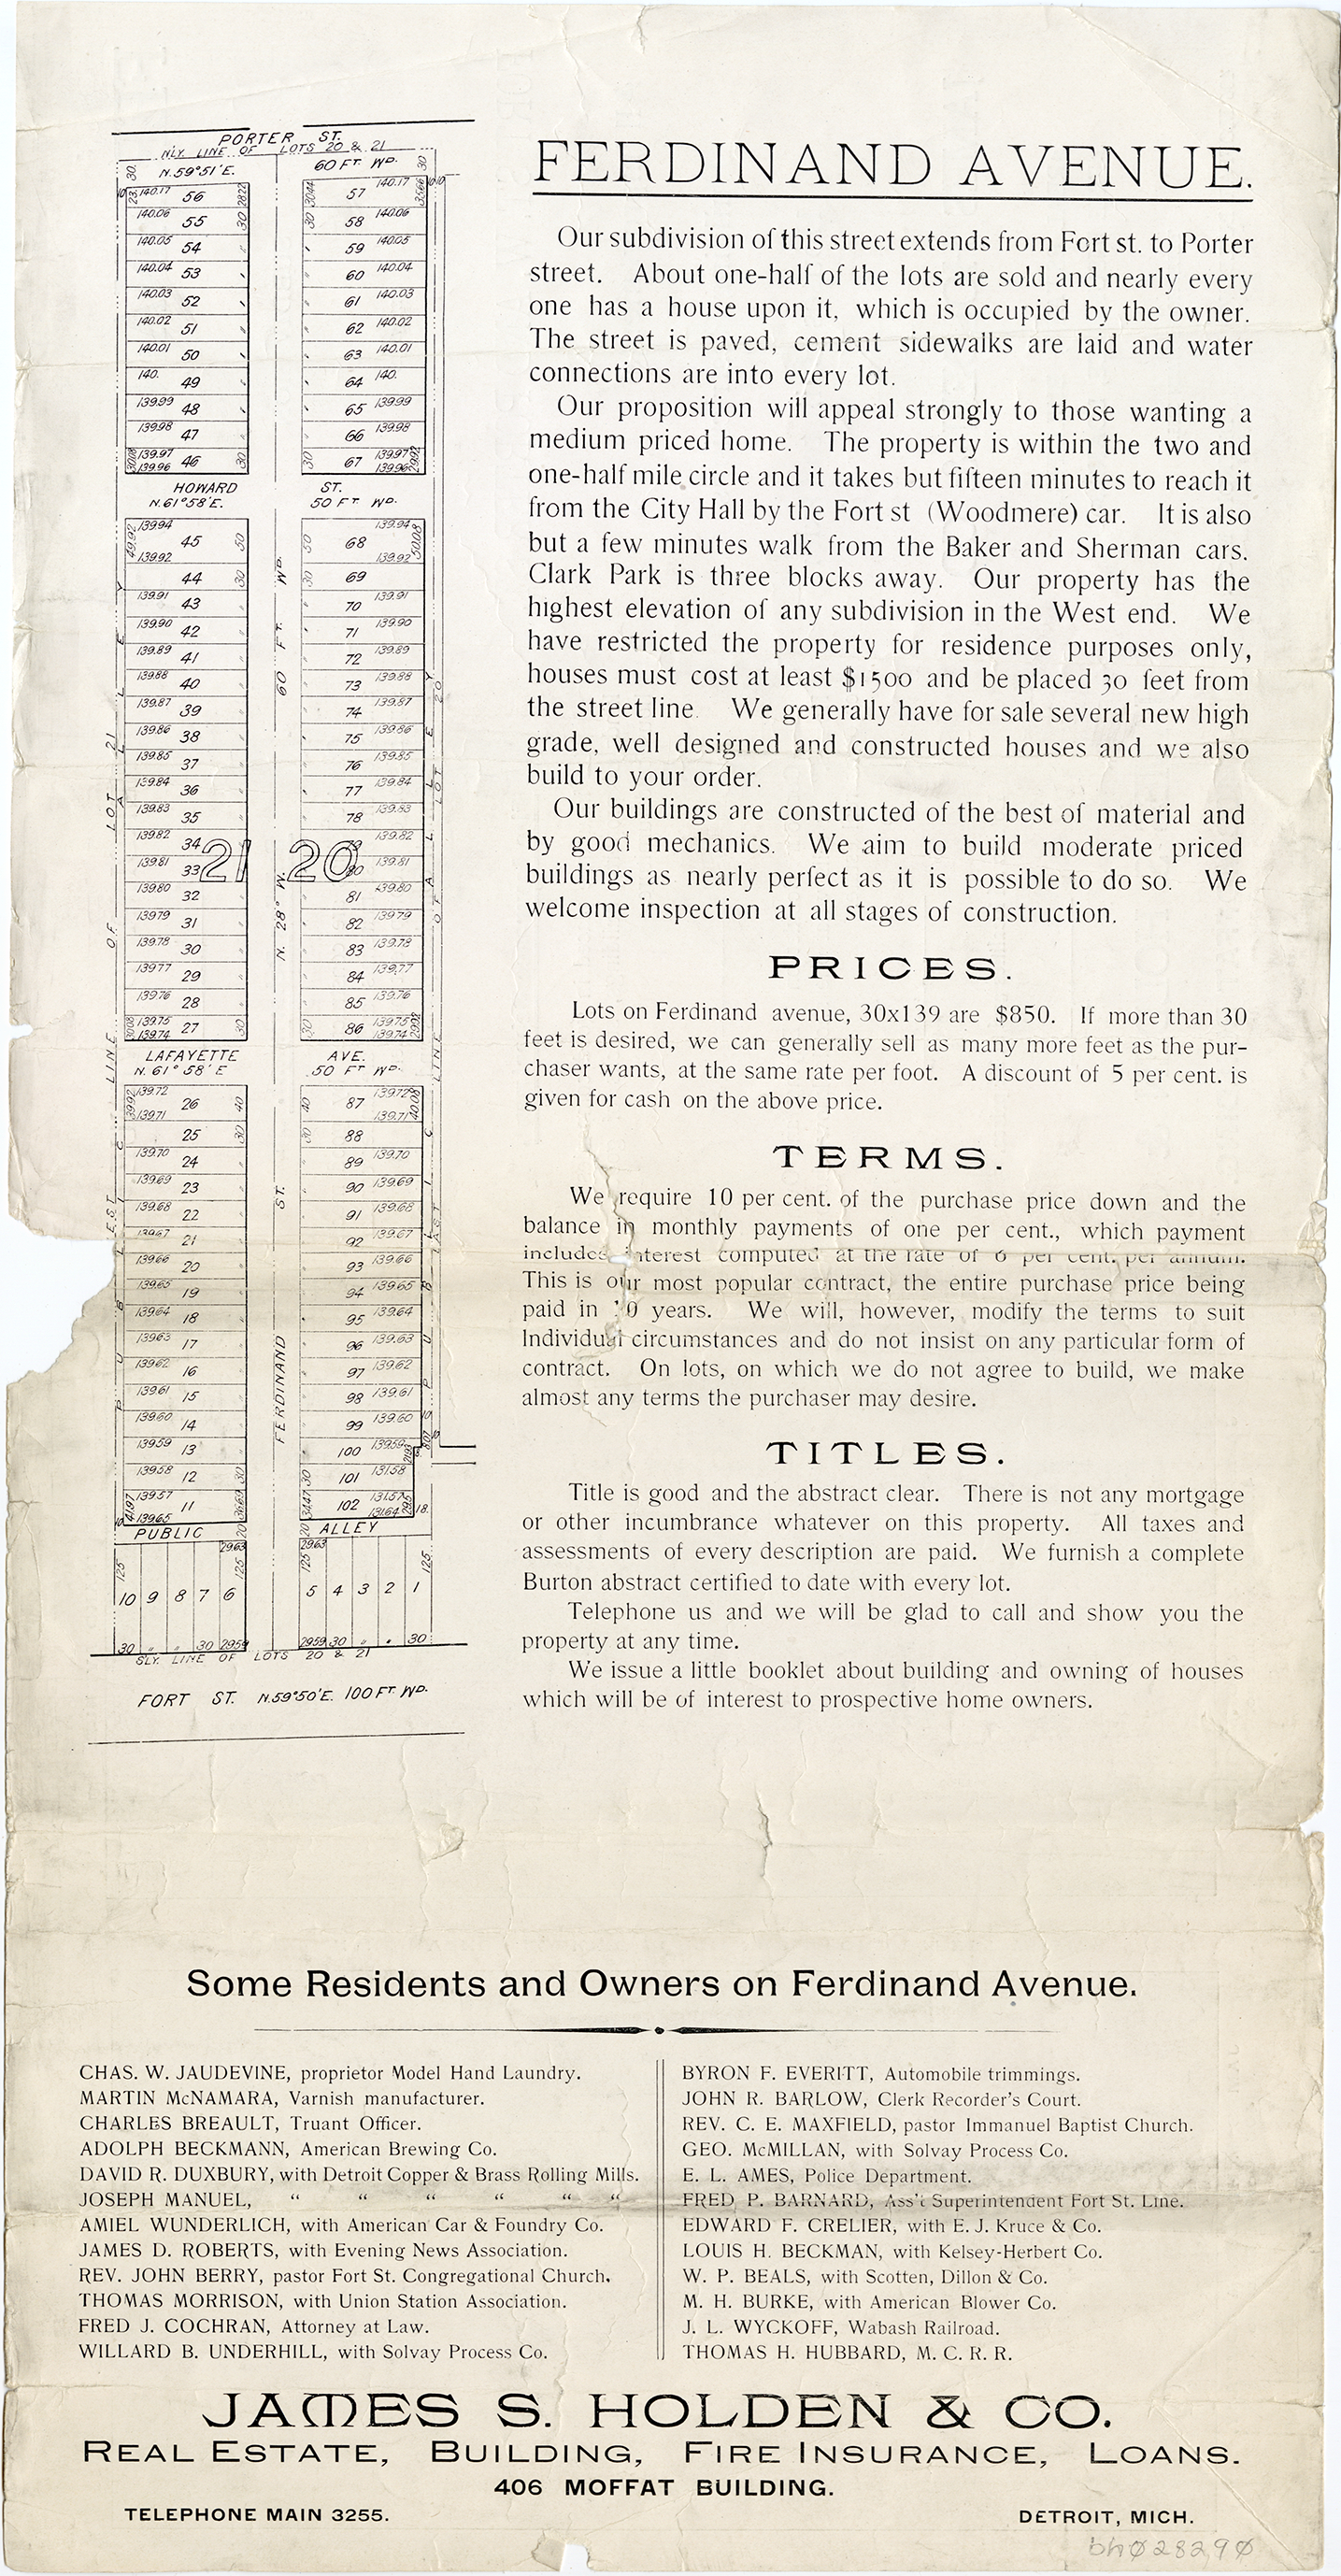 PORTER ST.
NLY. LINE OF LOTS 20 & 21
N. 59°51' E. 60 FT. WD.
30 30
140.17 56 57 140.17
140.06 55 30 30 58 140.06
140.05 54 59 140.05
140.04 53 60 140.04
140.03 52 61 140.03
140.02 51 62 140.02
140.01 50 63 140.01
140. 49 64 140.
139.99 48 65 139.99
139.98 47 66 139.98
139.97 46 30 30 67 139.97
139.96 139.96
HOWARD ST.
N. 61°58' E. 50 FT. WD.
139.94 45 50 50 68 139.94
139.92 139.92
44 30 30 69
139.91 43 70 139.91
139.90 42 71 139.90
139.89 41 72 139.89
139.88 40 73 139.88
139.87 39 74 139.87
139.86 38 75 139.86
139.85 37 76 139.85
139.84 36 77 139.84
139.83 35 78 139.83
139.82 34 139.82
21 20
139.81 33 80 139.81
139.80 32 81 139.80
139.79 31 82 139.79
139.78 30 83 139.78
139.77 29 84 139.77
139.76 28 85 139.76
139.75 27 30 30 86 139.75
139.74 139.74
LAFAYETTE AVE.
N. 61° 58' E 50 FT WD.
139.72 26 40 40 87 139.72
139.71 139.71
25 30 30 88
139.70 24 89 139.70
139.69 23 90 139.69
139.68 22 91 139.68
139.67 21 92 139.67
139.66 20 93 139.66
139.65 19 94 139.65
139.64 18 95 139.64
139.63 17 96 139.63
139.62 16 97 139.62
139.61 15 98 139.61
139.60 14 99 139.60
139.59 13 100 139.59
139.58 12 30 30 101 131.58
139.57 11 102 131.57
139.65 131.64 18.
PUBLIC 20 20 ALLEY
29.63 29.63
125 125 125 125
10 9 8 7 6 5 4 3 2 1
30 " " 30 29.59 29.59 30 " " 30
SLY. LINE OF LOTS 20 & 21
FORT ST. N.59°50'E. 100 FT. WD.
FERDINAND ST. N. 28° W. 60 FT. WD.
PUBLIC ALLEY
WEST LINE OF LOT 21
PUBLIC ALLEY
EAST LINE OF LOT 20
FERDINAND AVENUE.
Our subdivision of this street extends from Fort st. to Porter
street. About one-half of the lots are sold and nearly every
one has a house upon it, which is occupied by the owner.
The street is paved, cement sidewalks are laid and water
connections are into every lot.
Our proposition will appeal strongly to those wanting a
medium priced home. The property is within the two and
one-half mile circle and it takes but fifteen minutes to reach it
from the City Hall by the Fort st (Woodmere) car. It is also
but a few minutes walk from the Baker and Sherman cars.
Clark Park is three blocks away. Our property has the
highest elevation of any subdivision in the West end. We
have restricted the property for residence purposes only,
houses must cost at least $1500 and be placed 30 feet from
the street line. We generally have for sale several new high
grade, well designed and constructed houses and we also
build to your order.
Our buildings are constructed of the best of material and
by good mechanics. We aim to build moderate priced
buildings as nearly perfect as it is possible to do so. We
welcome inspection at all stages of construction.
PRICES.
Lots on Ferdinand avenue, 30x139 are $850. If more than 30
feet is desired, we can generally sell as many more feet as the pur-
chaser wants, at the same rate per foot. A discount of 5 per cent. is
given for cash on the above price.
TERMS.
We require 10 per cent. of the purchase price down and the
balance in monthly payments of one per cent., which payment
includes interest computed at the rate of 6 per cent. per annum.
This is our most popular contract, the entire purchase price being
paid in 10 years. We will, however, modify the terms to suit
Individual circumstances and do not insist on any particular form of
contract. On lots, on which we do not agree to build, we make
almost any terms the purchaser may desire.
TITLES.
Title is good and the abstract clear. There is not any mortgage
or other incumbrance whatever on this property. All taxes and
assessments of every description are paid. We furnish a complete
Burton abstract certified to date with every lot.
Telephone us and we will be glad to call and show you the
property at any time.
We issue a little booklet about building and owning of houses
which will be of interest to prospective home owners.
Some Residents and Owners on Ferdinand Avenue.
CHAS. W. JAUDEVINE, proprietor Model Hand Laundry.
MARTIN McNAMARA, Varnish manufacturer.
CHARLES BREAULT, Truant Officer.
ADOLPH BECKMANN, American Brewing Co.
DAVID R. DUXBURY, with Detroit Copper & Brass Rolling Mills.
JOSEPH MANUEL, “ “ “ “ “ “
AMIEL WUNDERLICH, with American Car & Foundry Co.
JAMES D. ROBERTS, with Evening News Association.
REV. JOHN BERRY, pastor Fort St. Congregational Church.
THOMAS MORRISON, with Union Station Association.
FRED J. COCHRAN, Attorney at Law.
WILLARD B. UNDERHILL, with Solvay Process Co.
BYRON F. EVERITT, Automobile trimmings.
JOHN R. BARLOW, Clerk Recorder's Court.
REV. C. E. MAXFIELD, pastor Immanuel Baptist Church.
GEO. McMILLAN, with Solvay Process Co.
E. L. AMES, Police Department.
FRED P. BARNARD, Ass't Superintendent Fort St. Line.
EDWARD F. CRELIER, with E. J. Kruce & Co.
LOUIS H. BECKMAN, with Kelsey-Herbert Co.
W. P. BEALS, with Scotten, Dillon & Co.
M. H. BURKE, with American Blower Co.
J. L. WYCKOFF, Wabash Railroad.
THOMAS H. HUBBARD, M. C. R. R.
JAMES S. HOLDEN & CO.
REAL ESTATE, BUILDING, FIRE INSURANCE, LOANS.
406 MOFFAT BUILDING.
TELEPHONE MAIN 3255. DETROIT, MICH.
bh028290